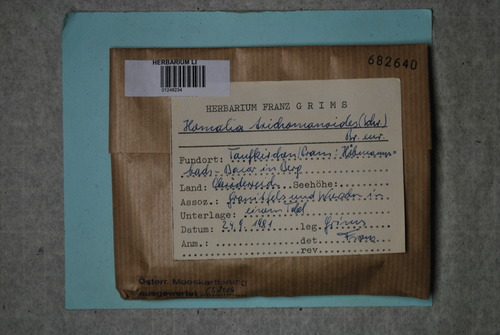 682640
HERBARIUM LI
HERBARIUM FRANZ GRIMS
Homalia trichomanoides (Schr.)
Br. eur.
Fundort: Taufkirchen/Pram:
bach - Bauer in Berg
Land: Seehöhe:
Assoz.: Granitfels und Wurzeln in
Unterlage: einem Tobel
Datum: 24.9.1981 leg. Grims
Anm.: det. Franz
rev.
Österr. Mooskartierung
ausgewertet